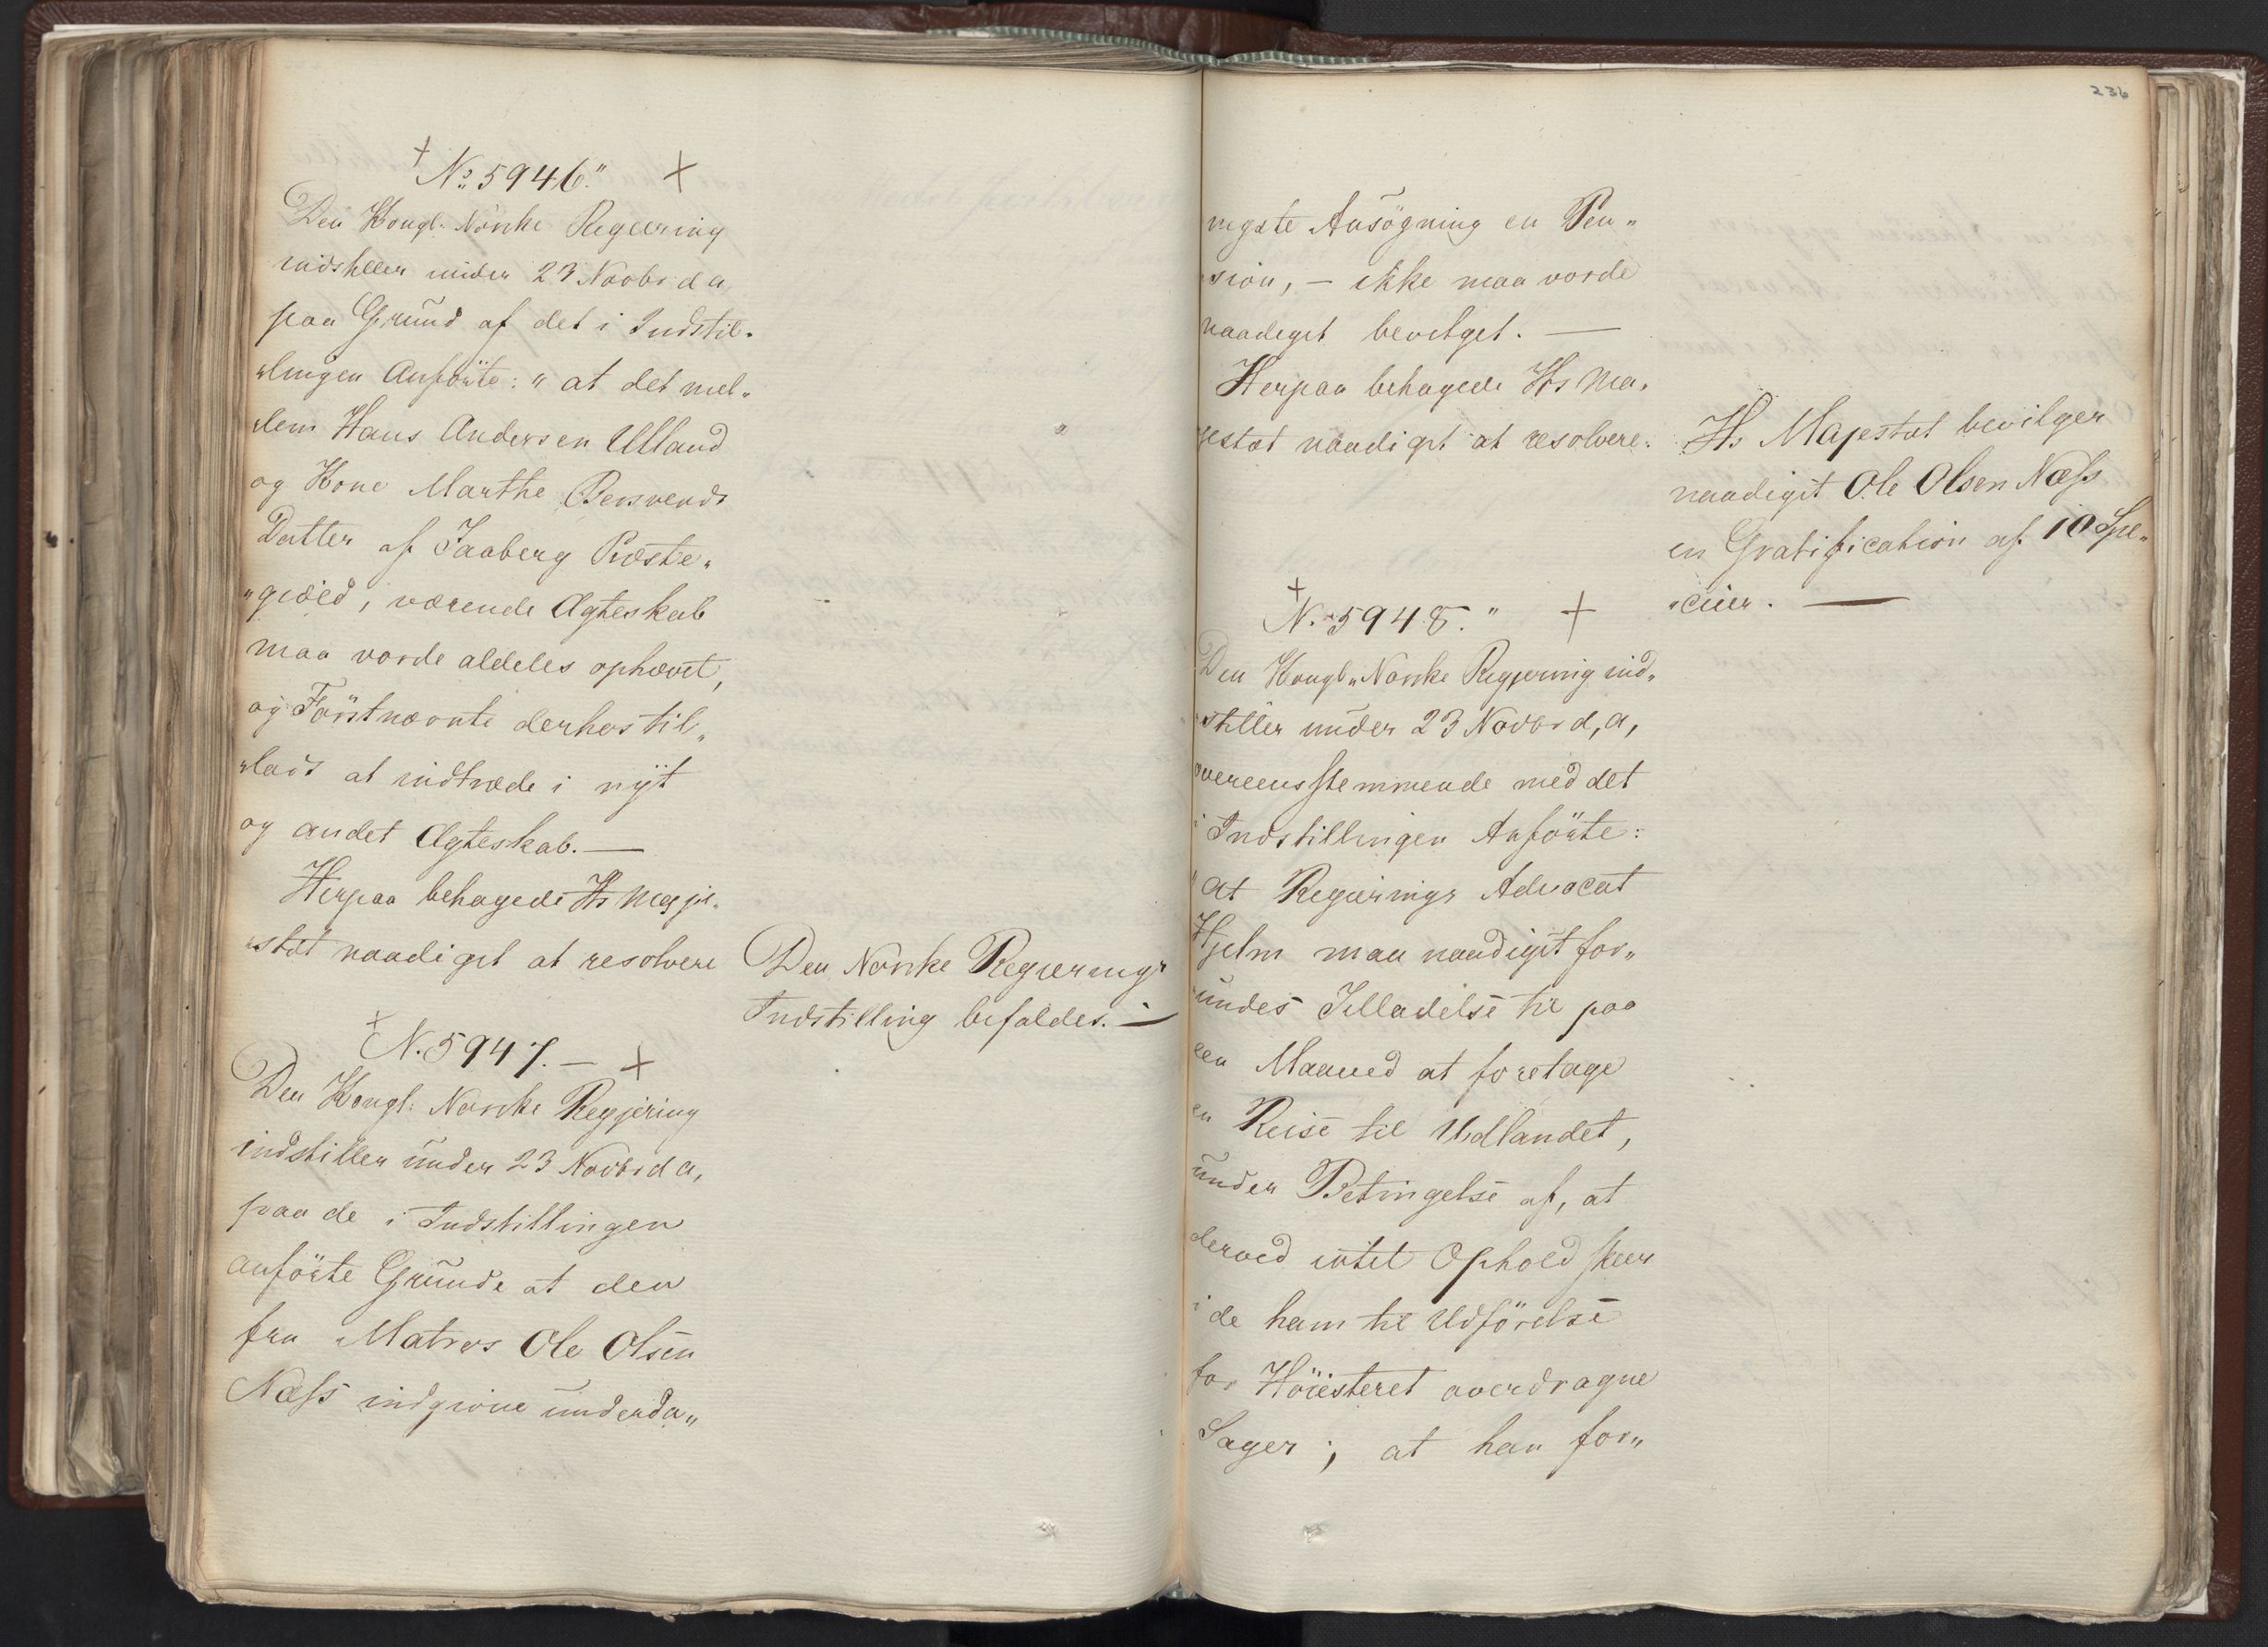 No 5946."
Den Kongl. Norske Regjering
indstiller under 23 Novbr d a
paa Grund af det i Indstil„
„lingen Anförte: „at det mel„
„lem Hans Andersen Ulland
og Kone Marthe
Datter af Faaberg Præste„
„gield, værende Ægteskab
maa vorde aldeles ophævet,
og Förstnævnte derhos til„
„lads at indtræde i nÿt
og andet Ægteskab. —
Herpaa behagede Hs Maje„
„stæt naadigst at resolvere
Den Norske Regjerings
Indstilling bifaldes. —
N. 5947. —
Den Kongl. Norske Regjering
indstiller under 23 Novbr d a,
paa de i Indstillingen
anförte Grunde at den
fra Matros Ole Olsen
Næss indgivne underda„
236
nigste Ansögning en Pen„
„sion, — ikke maa vorde
naadigst bevilget. —
Herpaa behagede Hs Ma„
jestæt naadigst at resolvere:
Hs Majestæt bevilger
naadigst Ole Olsen Næss
en Gratification af 10 Spe„
„cier. —
N. 5948."
Den Kongl. Norske Regjering ind„
„stiller under 23 Novbr d, a,
overeensstemmende med det
i Indstillingen Anförte:
„at Regjerings Advocat
Hjelm maa naadigst for„
undes Tilladelse til paa
een Maaned at foretage
en Reise til Udlandet,
under Betingelse af, at
derved intet Ophold skeer
i de ham til Udförelse
for Höiesteret overdragne
Sager; at han for„